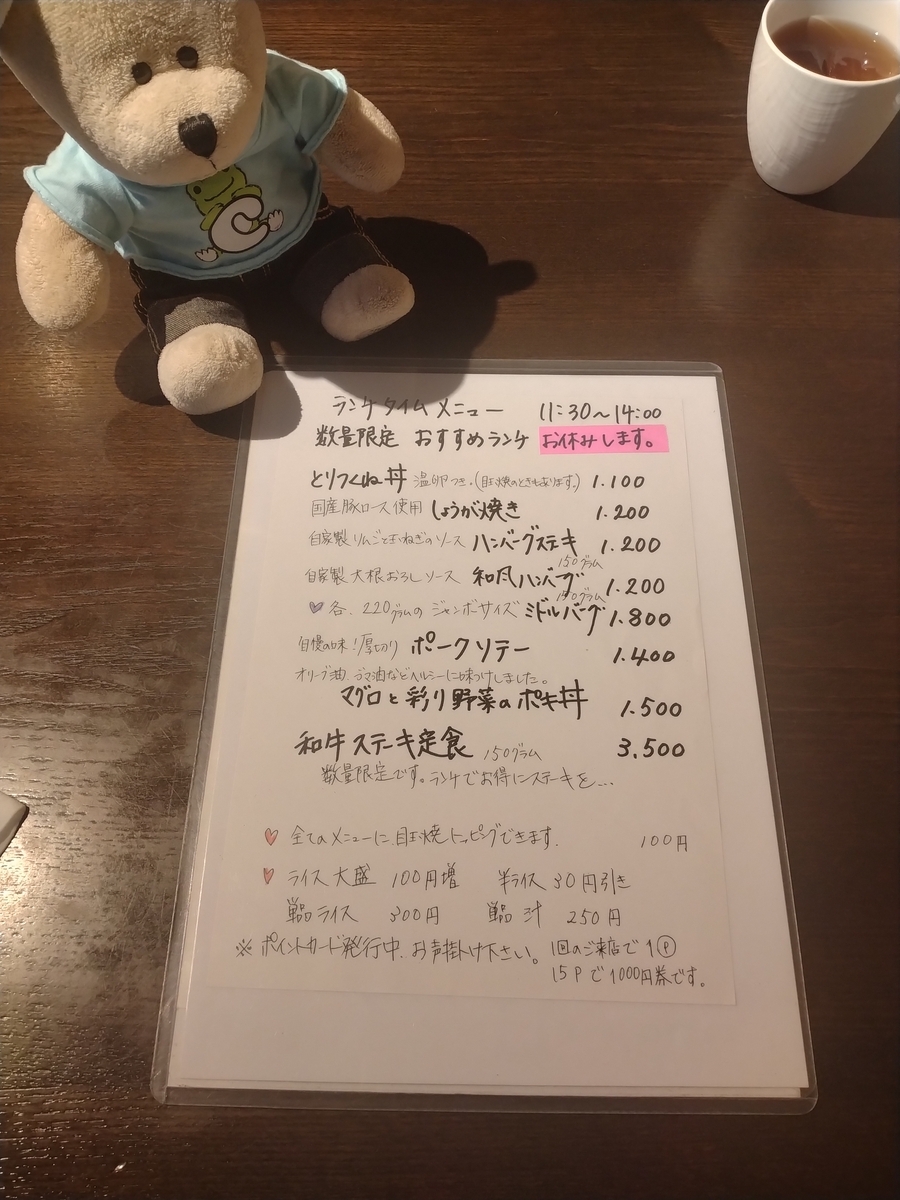 ランチタイムメニュー 11:30～14:00
数量限定 おすすめランチ お休みします。
とりつくね丼 温卵つき.(目玉焼のときもあります。) 1.100
国産豚ロース使用 しょうが焼き 1.200
自家製リンゴと玉ねぎのソース ハンバーグステキ 1.200
150グラム
自家製大根おろしソース 和風ハンバーグ 1.200
150グラム
各.220グラムの ジャンボサイズ ミドルバーグ 1.800
自慢の味!厚切り ポークソテー 1.400
オリーブ油.ゴマ油などヘルシーに味つけしました。
マグロと彩り野菜のポキ丼 1.500
和牛ステーキ定食 150グラム 3.500
数量限定です。ランチでお得にステーキを...
全てのメニューに.目玉焼トッピングできます. 100円
ライス大盛 100円増 半ライス 30円引き
単品ライス 300円 単品汁 250円
※ポイントカード発行中.お声掛け下さい。 1回のご来店で1Ⓟ
15Pで1000円券です。